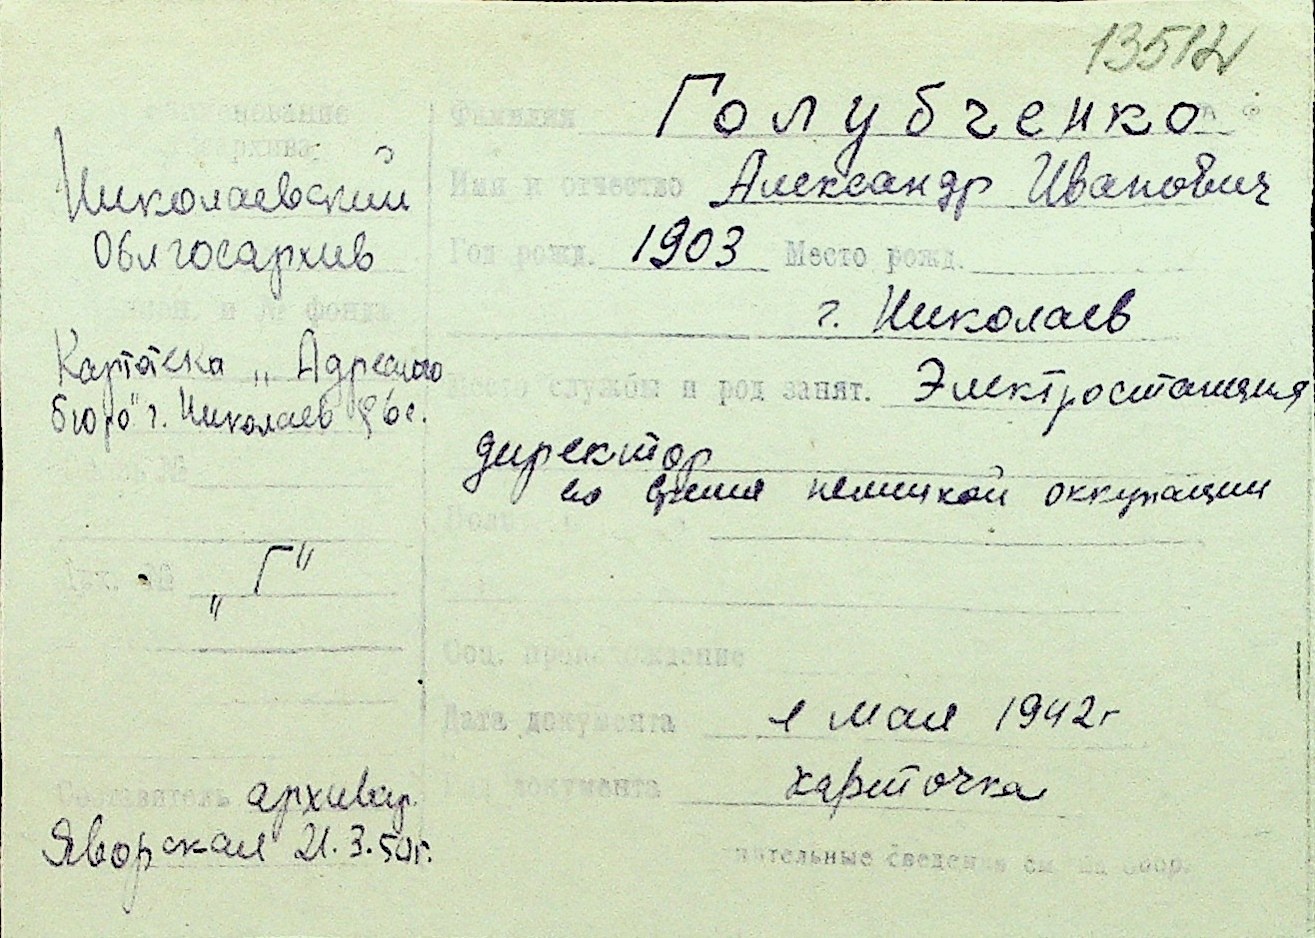 1351
Наименование
архива
Николаевский
Облгосархив
и № фонда
Картотека „Адресного
бюро" г. Николаев
Связь №
„Г"
Составитель архивар.
Яворская 21.3.50г.
Фамилия Голубченко
Имя и отчество Александр Иванович
Год рожд. 1903 Место рожд.
г. Николаев
Место службы и род занят. Электростанция
директор
во время немецкой оккупации
Соц. происхождение
Дата документа 1 мая 1942г
документа карточка
нительные сведения см на обор.